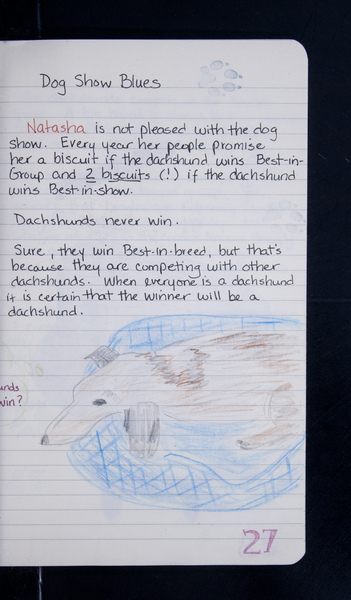 Dog Show Blues
Natasha is not pleased with the dog
show. Every year her people promise
her a biscuit if the dachshund wins Best-in-
Group and 2 biscuits (!) if the dachshund
wins Best-in-show.
Dachshunds never win.
Sure, they win Best-in-breed, but that's
because they are competing with other
dachshunds. When everyone is a dachshund
it is certain that the winner will be a
dachshund.
win?
27